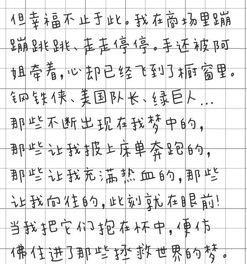 但幸福不止于此。我在商场里蹦
蹦跳跳、走走停停。手还被阿
姐牵着，心却已经飞到了橱窗里。
钢铁侠、美国队长、绿巨人...
那些不断出现在我梦中的，
那些让我披上床单奔跑的，
那些让我充满热血的，那些
让我向往的，此刻就在眼前！
当我把它们抱在怀中，便仿
佛住进了那些拯救世界的梦。